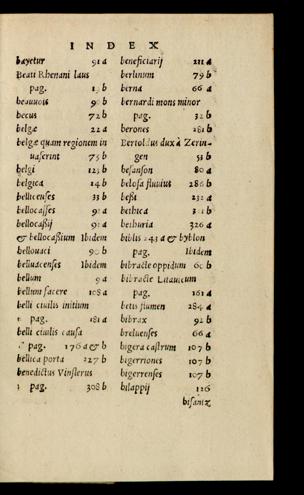 INDEX
bayetur 91 a
Beati Rhenani laus
pag. b
beauuois b
becus 72 b
belgæ 22 a
belgæ quam regionem in
uaserint 75 b
belgi 123 b
belgica 14 b
bellicenses 33 b
bellocasses 91 a
bellocassij 91 a
& bellocassium Ibidem
bellouaci 90 b
belluacenses Ibidem
bellum 9 a
bellum facere 108 a
belli ciuilis initium
pag. 181 a
belli ciuilis causa
pag. 176 a & b
bellica porta 227 b
benedictus Vinslerus
pag. 308 b
beneficiarij 211 a
berlinum 79 b
berna 66 a
bernardi mons minor
pag. 32 b
berones 281 b
Bertoldus dux à Zerin-
gen 51 b
besanson 80 a
belosa fluuius 286 b
bessi 232 a
bethica b
bethuria 326 a
biblis 243 a & byblon
pag. Ibidem
bibracte oppidum 60 b
bibracte Litauicum
pag. 161 a
betis flumen 284 a
bibrax 92 b
breluenses 66 a
bigera castrum 107 b
bigerriones 107 b
bigerrenses 107 b
bilappij 126
bisantz